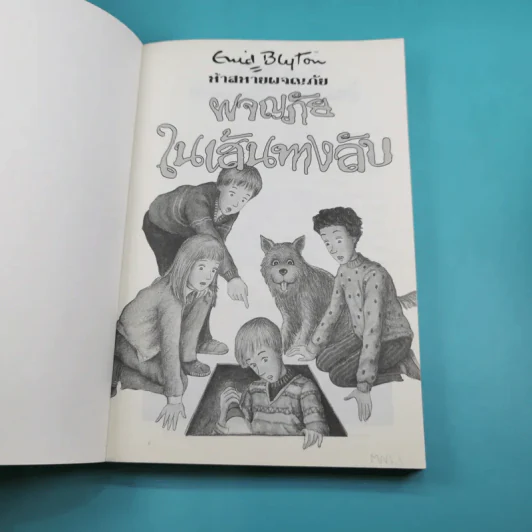 Enid Blyton
ห้าสหายผจญภัย
ผจญภัย
ในเส้นทางลับ